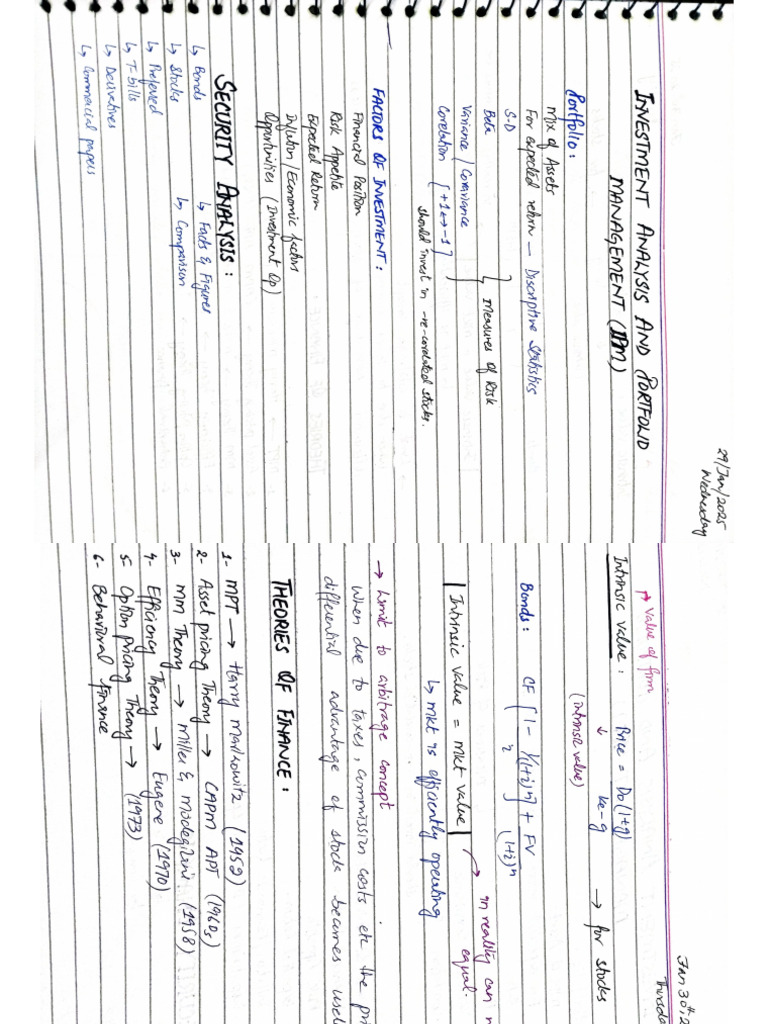 29/Jan/2025
Wednesday
INVESTMENT ANALYSIS AND PORTFOLIO
MANAGEMENT (IPM)
Portfolio:
Mix of Assets
For expected return — Discriptive Statistics
S.D
Beta
Variance / Covariance
Corelation [+1 ↔ -1]
↳ Measures of Risk
should invest in -re-corelated stocks.
FACTORS OF INVESTMENT:
Financial Position
Risk Appetite
Expected Return
Inflation / Economic factors
Opportunities (Investment Op)
SECURITY ANALYSIS:
↳ Bonds ↳ Facts & Figures
↳ Stocks ↳ Comparison
↳ Prefered
↳ T-bills
↳ Derivatives
↳ Commercial papers
Jan 30th, 2
Thursda
↱ value of firm
Intrinsic value: Price = Do(1+g) / ke-g → for stocks
↓
(intrinsic value)
Bonds: CF [1 - 1/(1+i)^n / i] + FV / (1+i)^n
| Intrinsic value = mkt value | → in reality can n
equal.
↳ mkt is efficiently operating
→ Limit to arbitrage concept
When due to taxes, commission costs etc the pr
differential advantage of stock becomes usel
THEORIES OF FINANCE:
1- MPT → Harry Markowitz (1952)
2- Asset pricing Theory → CAPM APT (1960s)
3- MM Theory → Miller & Modegilani. (1958)
4- Efficiency Theory → Eugene (1970)
5- Option pricing Theory → (1973)
6- Behavioral Finance